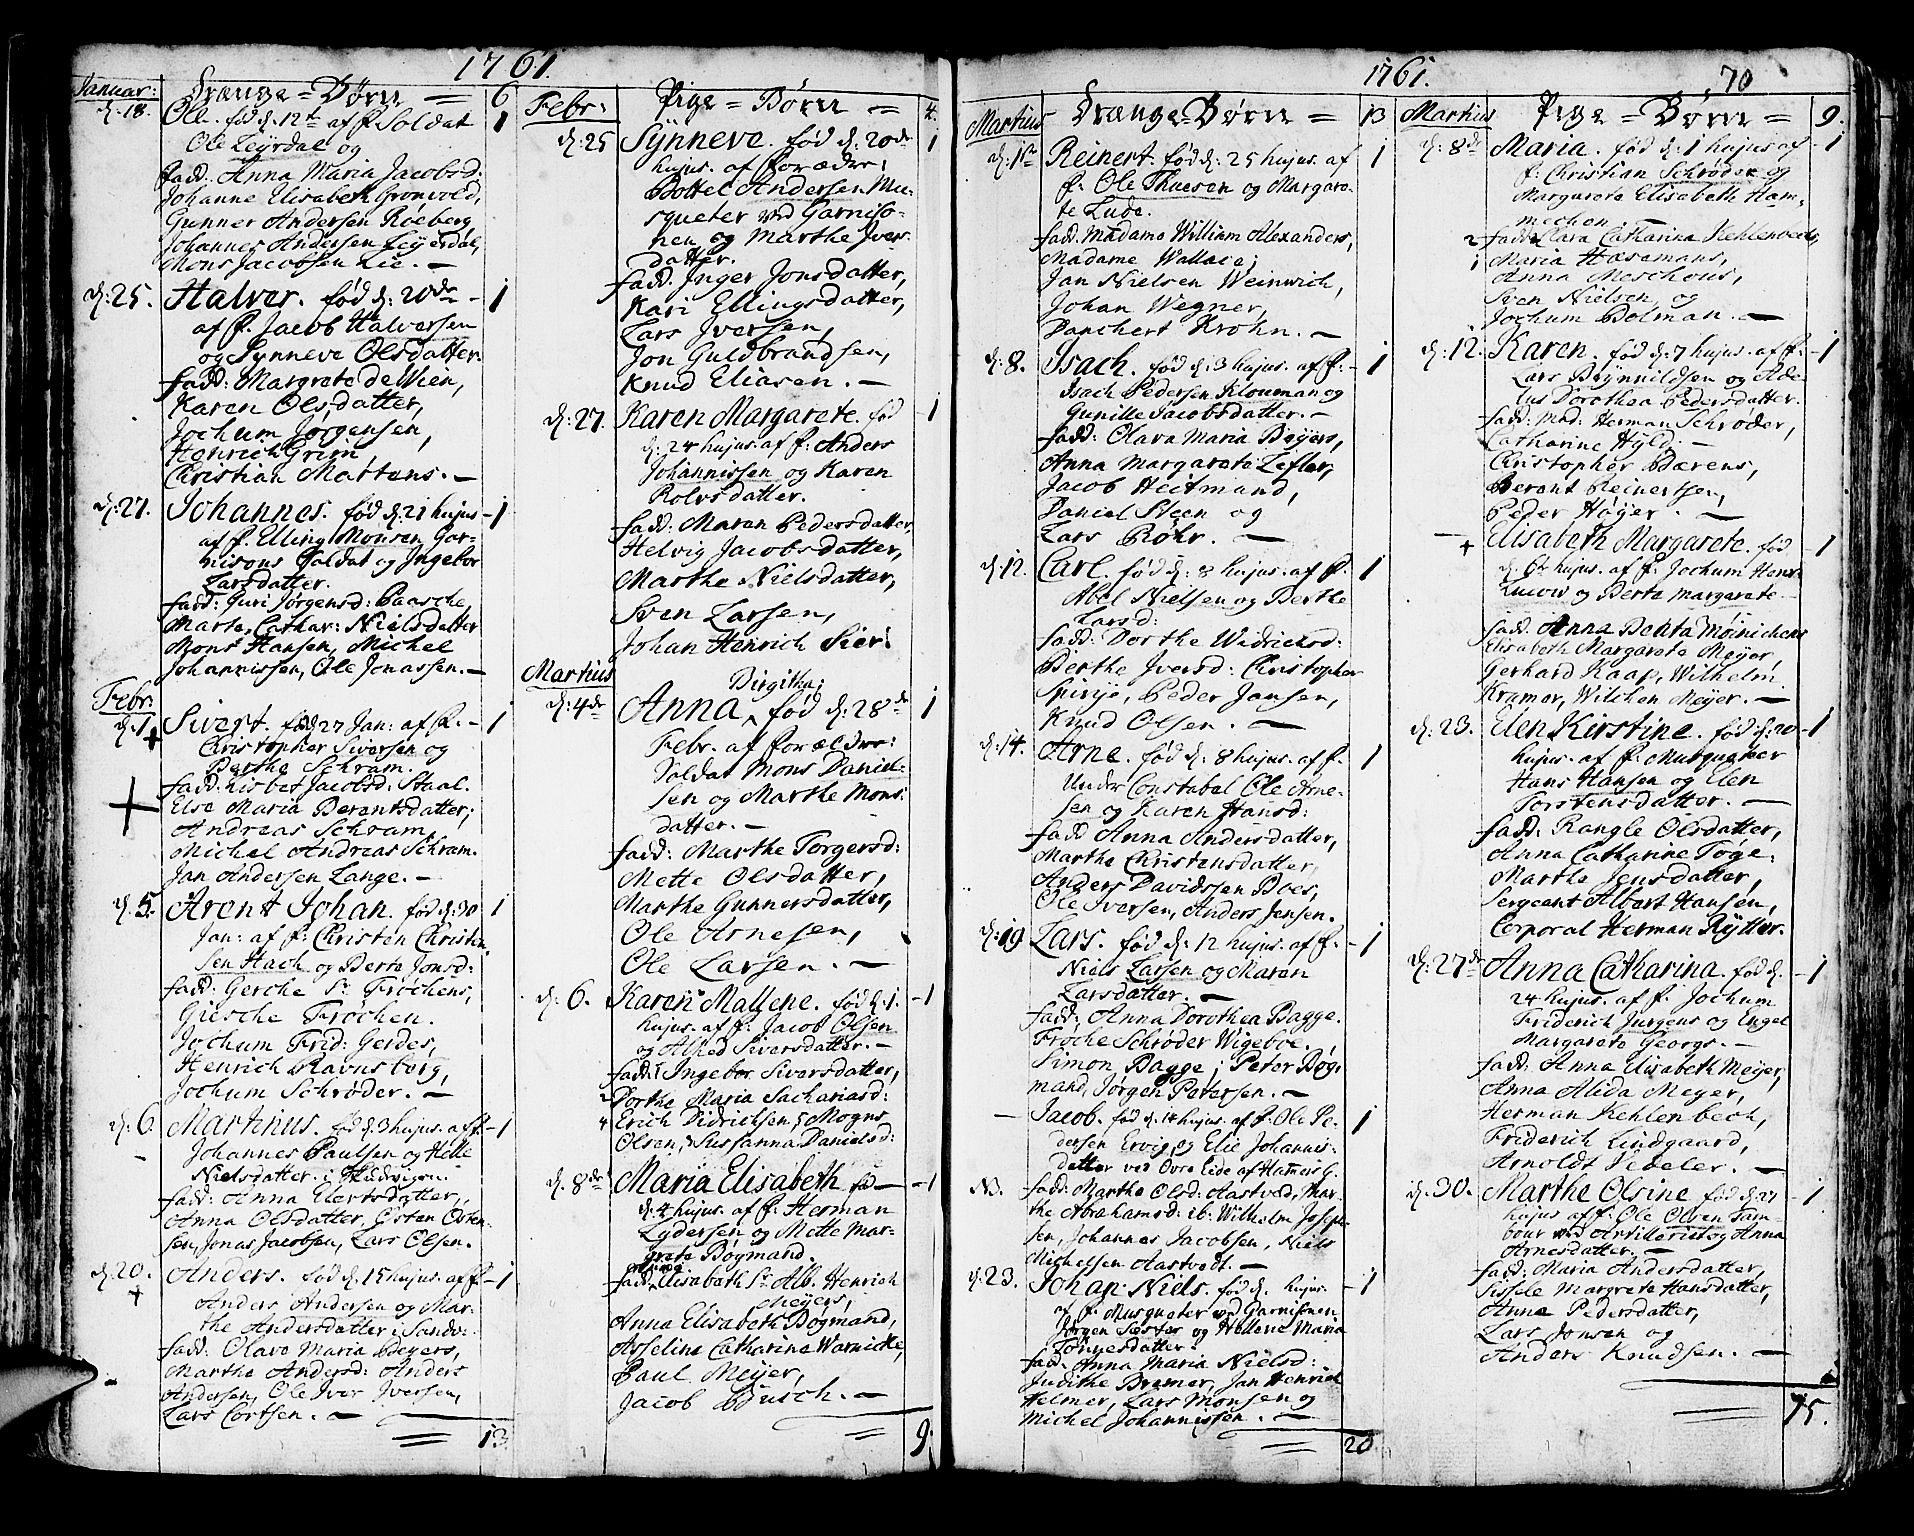 1761.
Januar:
Drænge = Børn = 6
d. 18. Ole. fød d: 12te af f. Soldat 1
Ole Leyrdal og
Fadd. Anna Maria Jacobsd:
Johanne Elisabeth Gronvold,
Gunner Andersen Roeberg
Johannes Andersen Leyersdal,
Mons Jacobsen Lie. —
d: 25. Halver. fød d: 20de — 1
af f. Jacob Halversen
og Synneve Olsdatter.
fadd: Margrete de Wien,
Karen Olsdatter,
Jochum Jørgensen,
Henrich Grim,
Christian Martens. —
d: 27. Johannes. fød d: 21 hujus — 1
af f. Elling Monsen Gar=
nisons Soldat og Ingebor
Larsdatter.
fadd: Guri Jørgensd: Paasche,
Marte Cathar: Nielsdatter
Mons Hansen, Michel
Johannissen, Ole Jonassen. —
Febr:
d: 1. + Sivert. fød 27 Jan: af f. — 1
Christopher Siversen og
Berthe Schram.
fadd: Lisbet Jacobsd: Staal.
Else Maria Berentsdatter;
Andreas Schram,
Michel Andreas Schram.
Jan Andersen Lange. —
d. 5. Arent Johan. fød d: 30 1
Jan: af f: Christen Christen
sen Hach og Berte Jonsd:
fadd: Gerche Sr Frøchens,
Giesche Frøchen.
Jochum Frid: Gerdes,
Henrich Ravnsborg,
Jochum Schrøder. —
d. 6. Martinus. fød d: 3 hujus. af f. — 1
Johannes Paulsen og Helle
Nielsdatter i Skudvigen.
fadd: Anna Elertsdatter,
Anna Olsdatter, Østen Østen=
sen, Jonas Jacobsen, Lars Olsen.
d: 20. + Anders. fød d: 15 hujus. af f — 1
Anders Andersen og Mar=
the Andersdatter i Sandv:
fadd: Olave Maria Beyers,
Marthe Andersd: Anders
Andersen, Ole Iver Iversen,
Lars Cortsen. —
13.
Pige = Børn = 4.
Febr:
d: 25 Synneve. fød d: 20de 1
hujus. af foræder:
Bottel Andersen Mu=
sqveter ved Garniso=
nen og Marthe Iver
datter.
fadd: Inger Jonsdatter,
Kari Ellingsdatter,
Lars Iversen,
Jon Guldbrandsen,
Knud Eliasen. —
d: 27. Karen Margarete. fød — 1
d: 24 hujus. af f: Anders
Johannissen og Karen
Rolvsdatter.
fadd: Maren Pedersdatter,
Helvig Jacobsdatter,
Marthe Nielsdatter,
Sven Larsen,
Johan Henrich Sier.
Martius
d: 4de Anna Birgitha; fød d: 28de 1
Febr. af forældre:
Soldat Mons Daniel=
sen og Marthe Mons:
datter. —
fadd: Marthe Torgersd:
Mette Olsdatter,
Marthe Gunnersdatter,
Ole Arnesen,
Ole Larsen. —
d: 6. Karen Mallene. fød d: 1. — 1
hujus. af f: Jacob Olsen
og Alhed Siversdatter. —
fadd: Ingebor Siversdatter,
2 Dorthe Maria Sachariasd:
4 Erich Didrichsen, 5 Mogns
Olsen, 3 Sussanna Danielsd:
d. 8de Maria Elisabeth fød — 1
d: 4 hujus. af f: Herman
Lydersen og Mette Mar=
grete Bøgmand.
fadd: Elisabeth Sr Alb. Henrich
Meyers,
Anna Elisabeth Bøgmand,
Asseline Catharine Warnicke,
Paul Meyer,
Jacob Busch. —
9.
1761. 70
Martius
Drænge = Børn = 13
d: 1te Reinert. fød d: 25 hujus. af 1
f. Ole Thuesen og Margare=
te Lude.
fadd: Madame William Alexanders,
Madame Wallace;
Jan Nielsen Weinwich,
Johan Wegner,
Danchert Krohn. —
d: 8. Isach. fød d: 3 hujus. af f: — 1
Isach Pedersen Klouman og
Gunille Jacobsdatter. —
fadd: Olava Maria Beyers,
Anna Margarete Zefler,
Jacob Heitmand,
Daniel Steen og
Lars Røhr. —
d: 12. Carl. fød d: 8 hujus. af f. 1
Abel Nielsen og Berthe
Larsd:
fadd: Dorthe Widrichsd:
Berthe Iversd: Christopher
Spirije, Peder Jansen,
Knud Olsen. —
d: 14. Arne. fød d: 8 hujus. af f. 1
Under Constabel Ole Arne=
sen og Karen Hansd:
fadd: Anna Andersdatter,
Marthe Christensdatter,
Anders Davidssen Boes,
Ole Iversen, Anders Jensen.
d: 19 Lars. fød d: 12 hujus. af f. — 1
Niels Larsen og Maren
Larsdatter. —
fadd: Anna Dorothea Bagge.
Froche Schrøder Wigeboe.,
Simon Bagge, Peter Bøg=
mand, Jørgen Petersen. —
— Jacob. fød d: 14 hujus. af f. Ole Pe= 1
dersen Ervig og Elie Johannis=
datter ved Øvre Eide af Hammers G.
N. fadd: Marthe Olsd: Aastved, Mar=
the Abrahamsd: ib: Wilhelm Joseph
sen, Johannes Jacobsen, Niels
Michelsen Aastvedt. —
d: 23. Johan Niels. fød d. hujus. — 1
af f. Musqueter ved Garnisonen
Jørgen Sæster og Hellene Maria
Tonnesdatter.
fadd: Anna Maria Nielsd:
Judithe Bremer, Jan Henrich
Helmer, Lars Monsen og
Michel Johannissen. —
20.
Martius
Pige = Børn = 9.
d: 8de Maria. fød d: 1 hujus af — 1
f: Christian Schrøder og
Margarete Elisabeth Ham=
mechen —
2 fadd: Clara Catharina Kehlenbech,
1 Maria Hæsemans,
Anna Meschous,
Sven Nielsen, og
Jochum Bolman. —
d: 12. Karen. fød d: 7 hujus. af f. — 1
Lars Brynnildsen og Ade=
lus Dorothea Pedersdatter.
fadd: Mad: Herman Schrøder,
Catharine Hyld. —
Christopher Bærens,
Berent Reinertsen,
Peder Høyer. —
— + Elisabeth Margarete. fød — 1
d. 6te hujus. af f: Jochum Henr:
Lucow og Berte Margarete —
fadd: Anna Beata Møinichens
Elisabeth Margarete Meyer,
Gerhard Kaap, Wilhelm
Kramer, Wilchen Meyer. —
d: 23. Elen Kirstine. fød d: 20 — 1
hujus. af f. Musqueter
Hans Hansen og Elen
Torstensdatter. —
fadd: Rangle Olsdatter,
Anna Catharine Føge.
Marthe Jensdatter,
Sergeant Albert Hansen,
Corporal Herman Rytter.
d: 27de Anna Catharina. fød d. — 1
24 hujus. af f. Jochum
Friderich Jurgens og Engel
Margarete Georgs. —
fadd: Anna Elisabeth Meyer,
Anna Alida Meyer,
Herman Kehlenbech,
Friderich Lindgaard,
Arnoldt Vedeler. —
d: 30. Marthe Olsine fød d: 27 — 1
hujus af f: Ole Olsen Tam=
bour ved Artilleriet og Anna
Arnesdatter. —
fadd: Maria Andersdatter,
Sissele Margrete Hansdatter,
Anne Pedersdatter,
Lars Jonsen og
Anders Knudsen. —
15.